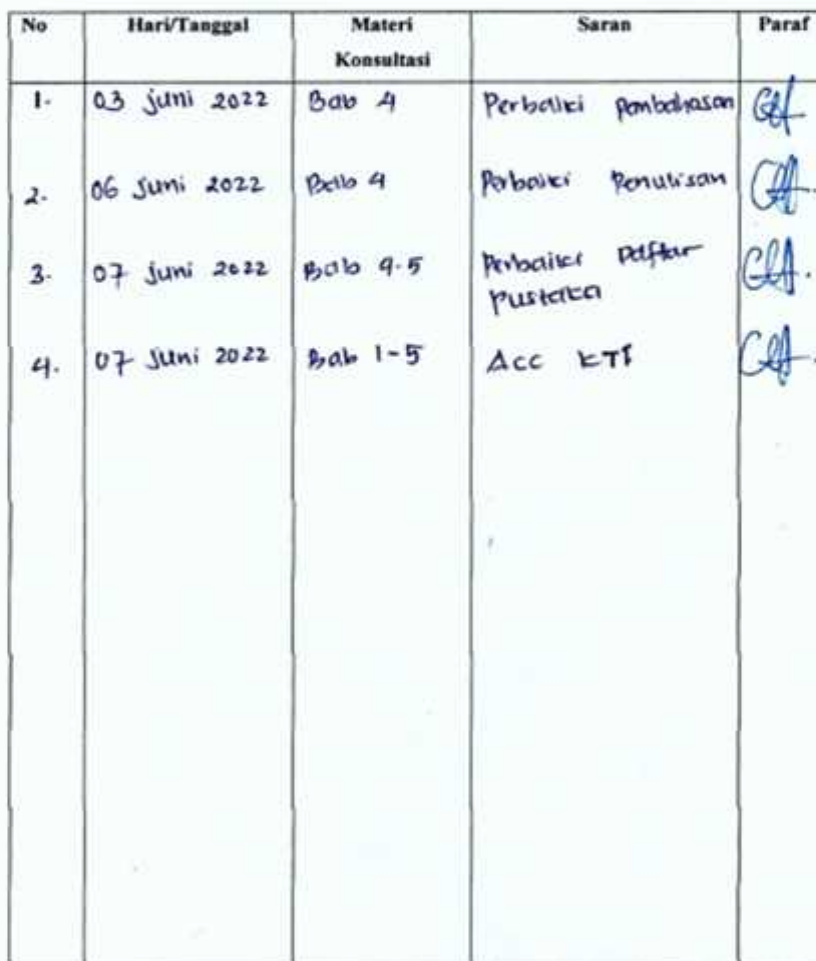 No Hari/Tanggal Materi Konsultasi Saran Paraf
1. 03 juni 2022 Bab 4 Perbaiki pembahasan
2. 06 Juni 2022 Bab 4 Perbaiki Penulisan
3. 07 juni 2022 Bab 4-5 Perbaiki Daftar
pustaka
4. 07 Juni 2022 Bab 1-5 Acc KTI